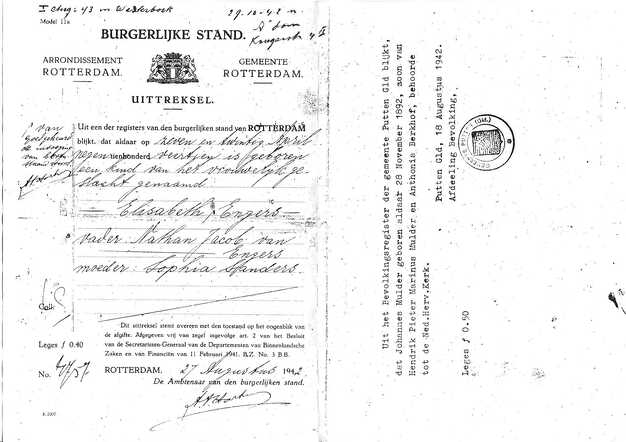 I Chg: 43 in Westerbork
29-10-42 n.
A'dam
Model 11a
BURGERLIJKE STAND.
ARRONDISSEMENT
ROTTERDAM.
GEMEENTE
ROTTERDAM.
UITTREKSEL.
Uit een der registers van den burgerlijken stand van ROTTERDAM
blijkt, dat aldaar op zeven en twintig April
negentienhonderd veertien is geboren
een kind van het vrouwelijk ge-
slacht genaamd
Elisabeth Engers
vader: Nathan Jacob van
Engers
moeder: Sophia Sanders.
"van"
Coll:
Dit uittreksel stemt overeen met den toestand op het oogenblik van
de afgifte. Afgegeven vrij van zegel ingevolge art. 2 van het Besluit
van de Secretarissen-Generaal van de Departementen van Binnenlandsche
Zaken en van Financiën van 11 Februari 1941. B.Z. No. 3 B.B.
Leges f 0.40
No. 4757
ROTTERDAM, 27 Augustus 1942
De Ambtenaar van den burgerlijken stand.
Uit het Bevolkingsregister der gemeente Putten Gld blijkt,
dat Johannes Mulder geboren aldaar 28 November 1892, zoon van
Hendrik Pieter Marinus Mulder en Anthonia Berkhof, behoorde
tot de Ned.Herv.Kerk.
Putten Gld, 18 Augustus 1942.
Afdeeling Bevolking,
Leges f 0.50